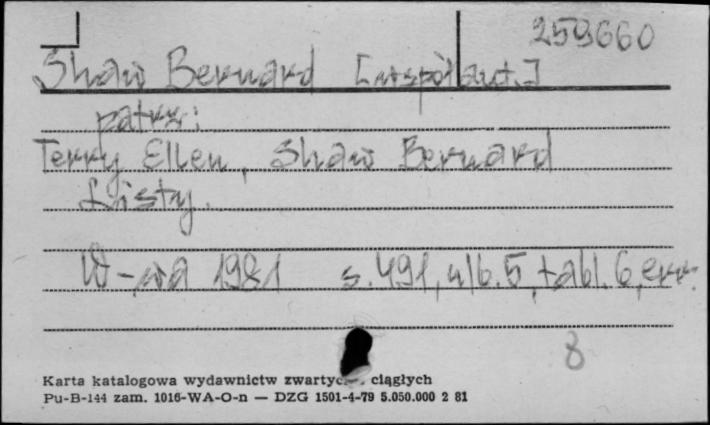 259660
Shaw Bernard [współaut.]
patrz:
Terry Ellen, Shaw Bernard
Listy.
W-wa 1981 s. 491, nlb. 5, tabl. 6, err.
8
Karta katalogowa wydawnictw zwartych, ciągłych
Pu-B-144 zam. 1016-WA-O-n — DZG 1501-4-79 5.050.000 2 81